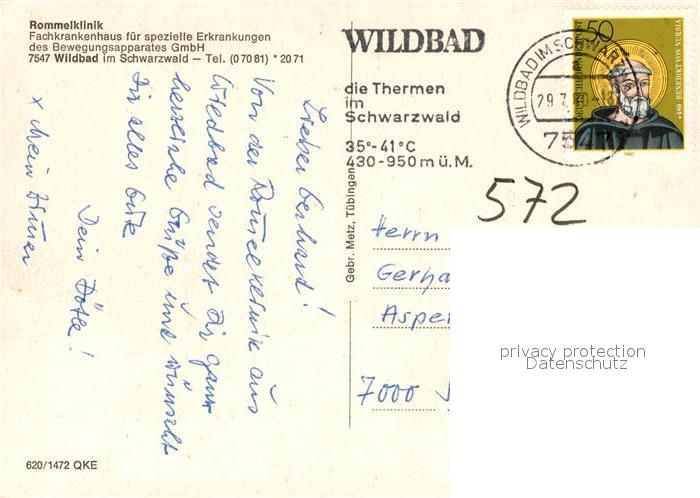 Rommelklinik
Fachkrankenhaus für spezielle Erkrankungen
des Bewegungsapparates GmbH
7547 Wildbad im Schwarzwald — Tel. (07081) *2071
Lieber Gerhard!
Von der Rommelklinik aus
Wildbad sendet Dir ganz
herzliche Grüße und wünscht
Dir alles Gute
Dein Döte!
x mein Zimmer
620/1472 QKE
WILDBAD
die Thermen
im
Schwarzwald
35°-41°C
430-950 m ü. M.
Gebr. Metz, Tübingen
WILDBAD IM SCHWARZW
29.7.80-18
7547
50
DEUTSCHE BUNDESPOST
*480 BENEDIKT VON NURSIA
1980
572
Herrn
Gerha
Asper
7000
privacy protection
Datenschutz